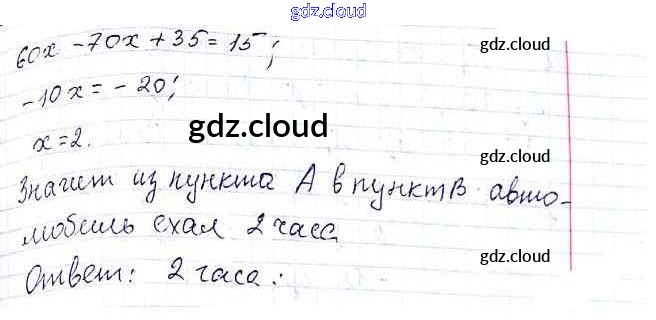 gdz.cloud
60x - 70x + 35 = 15;
gdz.cloud
-10x = -20;
gdz.cloud
x = 2.
gdz.cloud
Значит из пункта А в пункт В авто-
мобиль ехал 2 часа
gdz.cloud
Ответ: 2 часа.